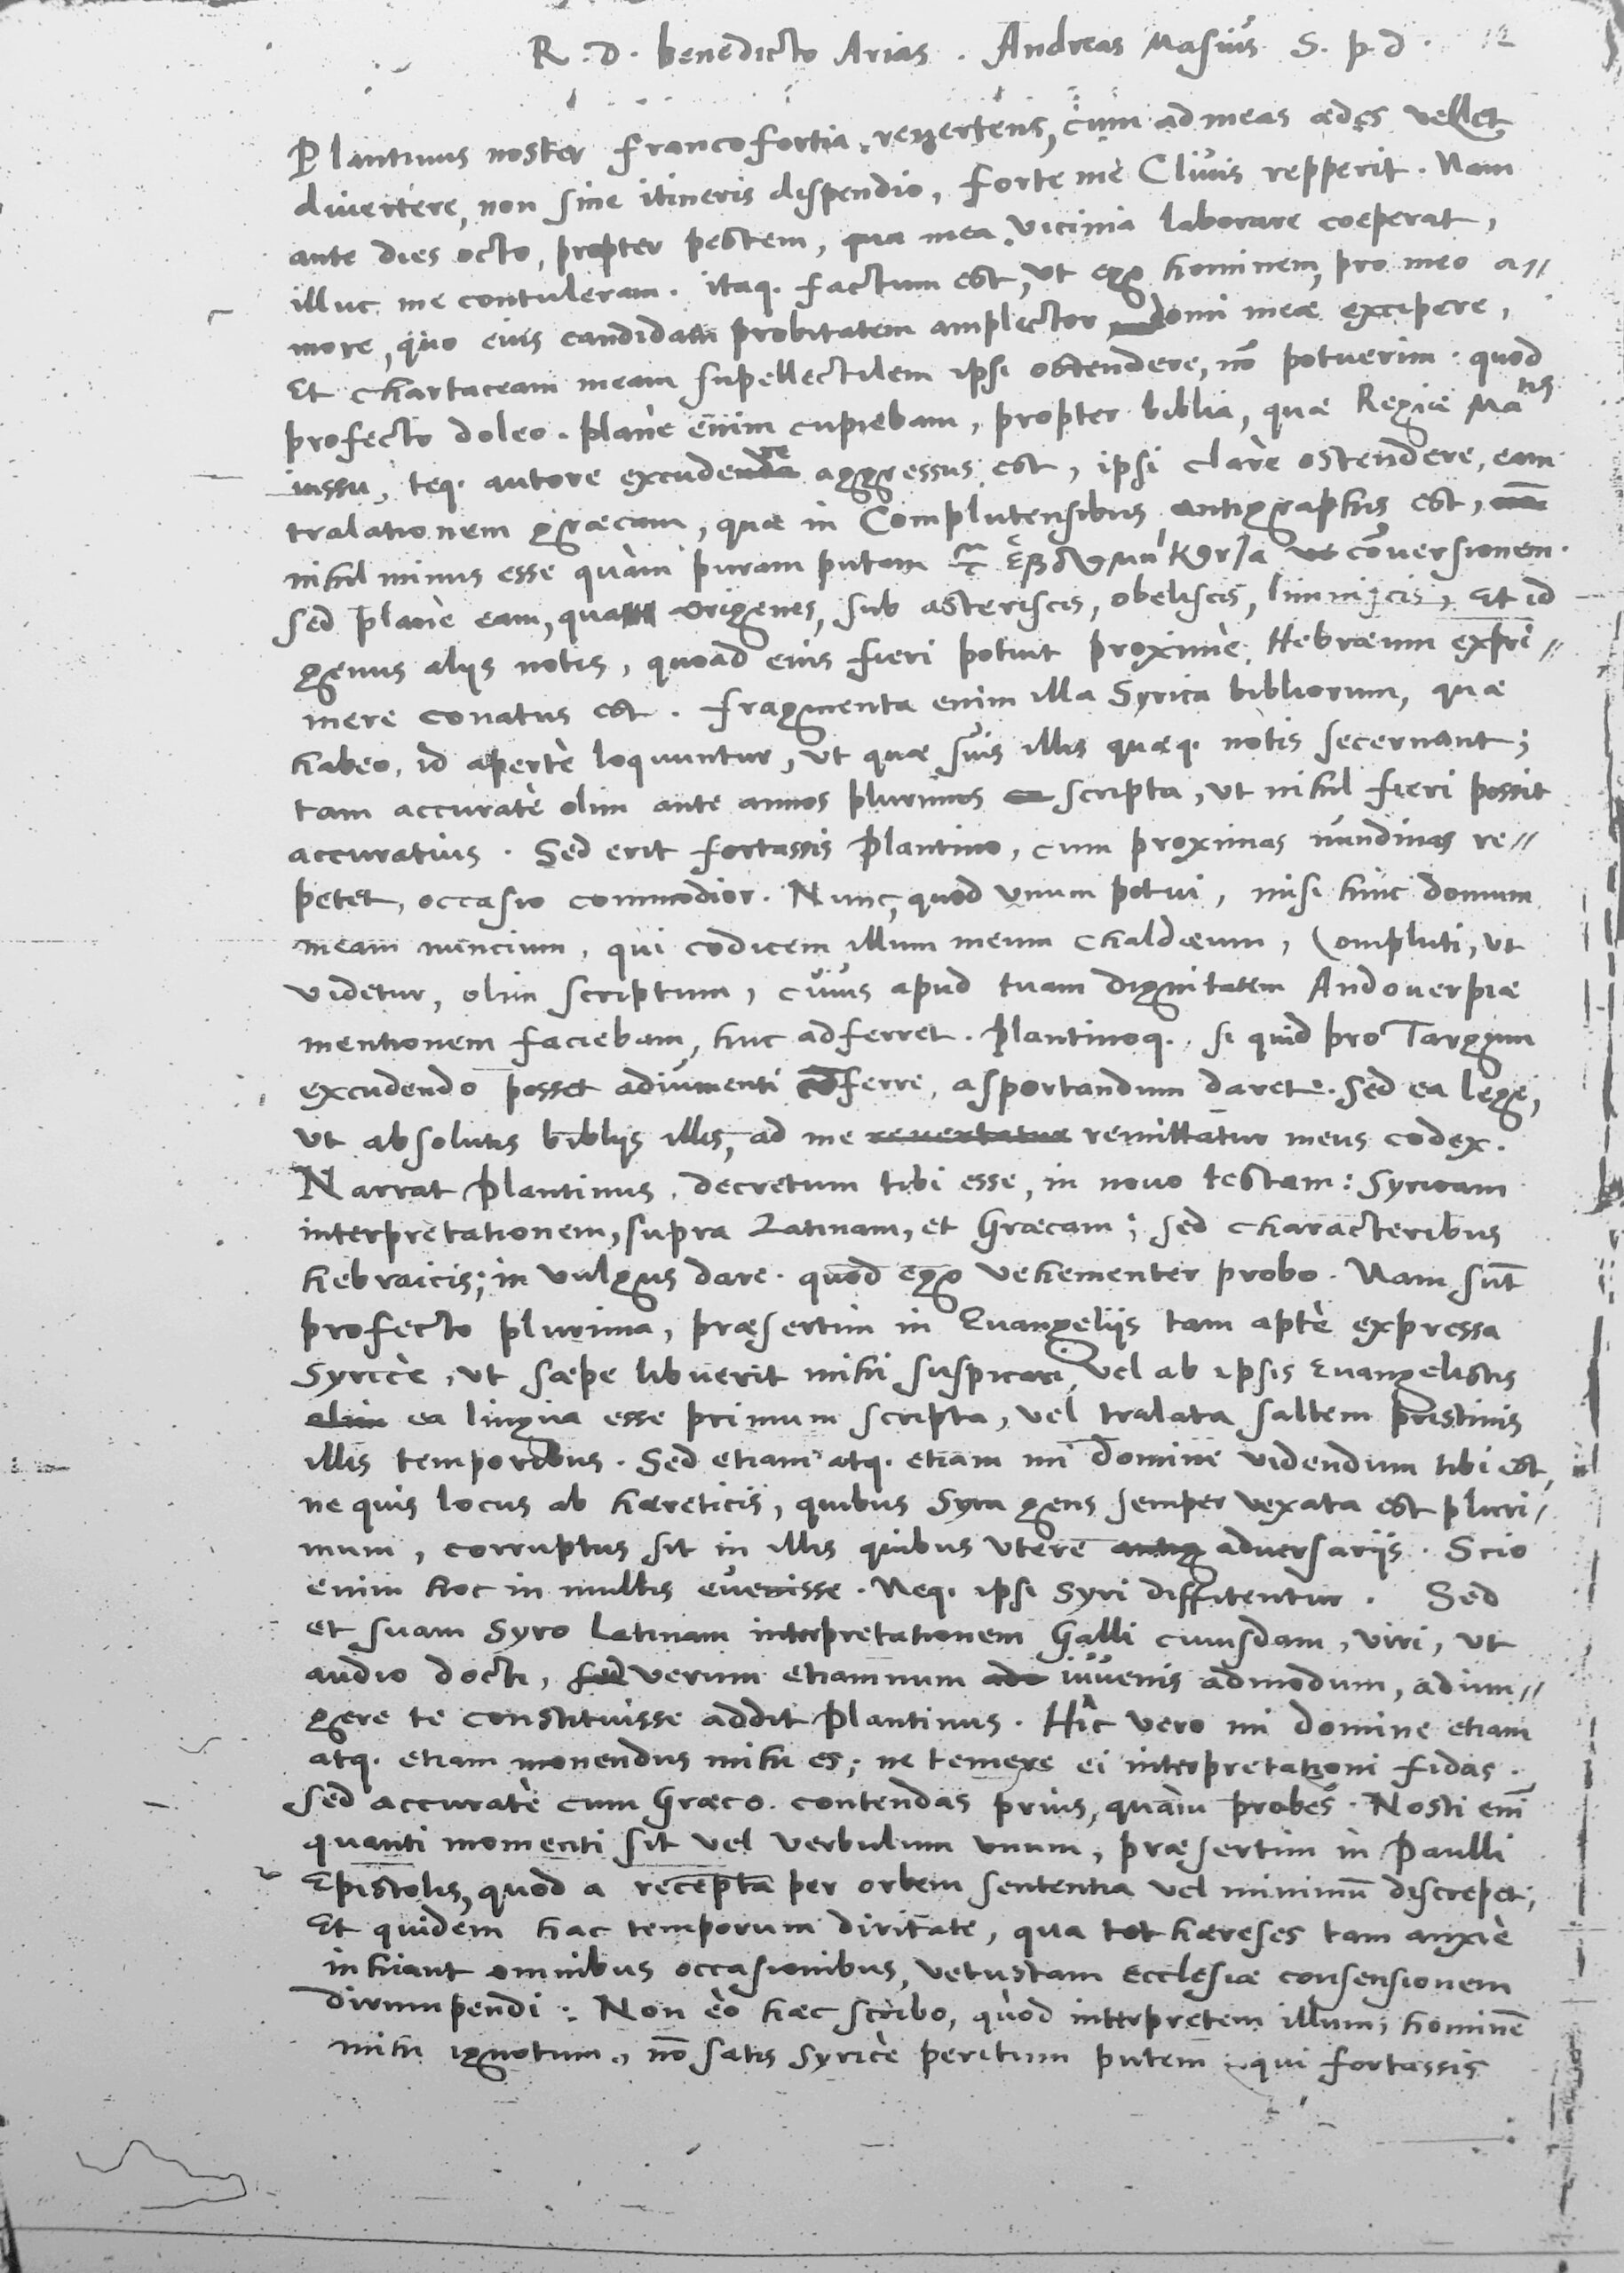 R. D. benedicto Arias. Andreas Masius S. p. d. 12
Plantinus noster francofortia revertens, cum ad meas ædes vellet
divertere, non sine itineris dispendio, forte me Clivis repperit. Nam
ante dies octo, propter pestem, qua mea vicinia laborare coeperat,
illuc me contuleram. itaq. factum est, ut ego hominem, pro meo a//
more, quo eius candidam probitatem amplector domi meæ excipere,
Et chartaceam meam supellectilem ipsi ostendere, nõ potuerim. quod
profecto doleo. planè enim cupiebam, propter biblia, quæ Regiæ Matis
iussu, teq. autore excudere aggressus est, ipsi clarè ostendere, eam
tralationem græcam, quæ in Complutensibus antigraphis est,
nihil minus esse quàm puram putam ἑβδομήκοντα conversionem.
sed planè eam, qua Origenes, sub asteriscis, obeliscis, limniscis, Et id
genus alijs notis, quoad eius fieri potuit proximè Hebræum expri//
mere conatus est. fragmenta enim illa Syrica bibliorum, quæ
habeo, id apertè loquuntur, ut quæ suis illis quæq. notis secernant;
tam accuratè olim ante annos plurimos scripta, ut nihil fieri possit
accuratius. Sed erit fortassis Plantino, cum proximas nundinas re//
petet, occasio commodior. Nunc, quod unum potui, misi hinc domum
meam nuncium, qui codicem illum meum chaldæum, Compluti, ut
videtur, olim scriptum, cuius apud tuam dignitatem Andouerpiæ
mentionem faciebam, huc adferret. Plantinoq. si quid pro Targum
excudendo posset adiumenti cõferre, asportandum daret. Sed ea lege,
ut absolutis biblijs illis, ad me revertatur remittatur meus codex.
Narrat Plantinus, decretum tibi esse, in novo testam: Syricam
interpretationem, supra Latinam, et Græcam; sed characteribus
hebraicis; in vulgus dare. quod ego vehementer probo. Nam sũt
profecto plurima, præsertim in Evangelijs tam aptè expressa
Syricè, ut sæpe libuerit mihi suspicari, vel ab ipsis Evangelistis
olim ea lingua esse primum scripta, vel tralata saltem pristinis
illis temporibus. Sed etiam atq. etiam mi domine videndum tibi est,
ne quis locus ab hæreticis, quibus Syra gens semper vexata est pluri//
mum, corruptus sit in illis quibus utere adversarijs. Scio
enim hoc in multis evenisse. Neq. ipsi Syri diffitentur. Sed
et suam Syro Latinam interpretationem Galli cuiusdam, viri, ut
audio docti, sed verum etiamnum ado iuvenis admodum, adiun//
gere te constituisse addit Plantinus. Hîc vero mi domine etiam
atq. etiam monendus mihi es; ne temere ei interpretationi fidas.
Sed accuratè cum Græco contendas prius, quàm probes. Nosti enĩ
quanti momenti sit vel verbulum unum, præsertim in Paulli
Epistolis, quod a recepta per orbem sententia vel minimũ discrepet;
Et quidem hac temporum diritate, qua tot hæreses tam anxiè
inhiant omnibus occasionibus, vetustam Ecclesiæ consensionem
dirumpendi: Non eò hæc scribo, quòd interpretem illum, hominẽ
mihi ignotum, nõ satis Syricè peritum putem, qui fortassis